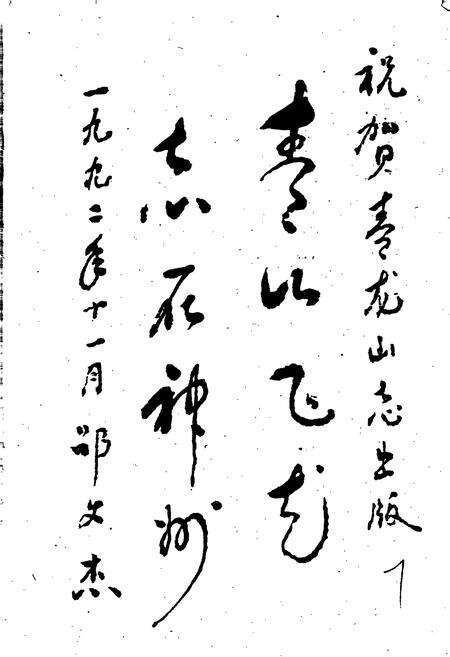 祝贺寿龙山志出版
寿比飞龙
志在神州
一九九二年十一月 邵文杰